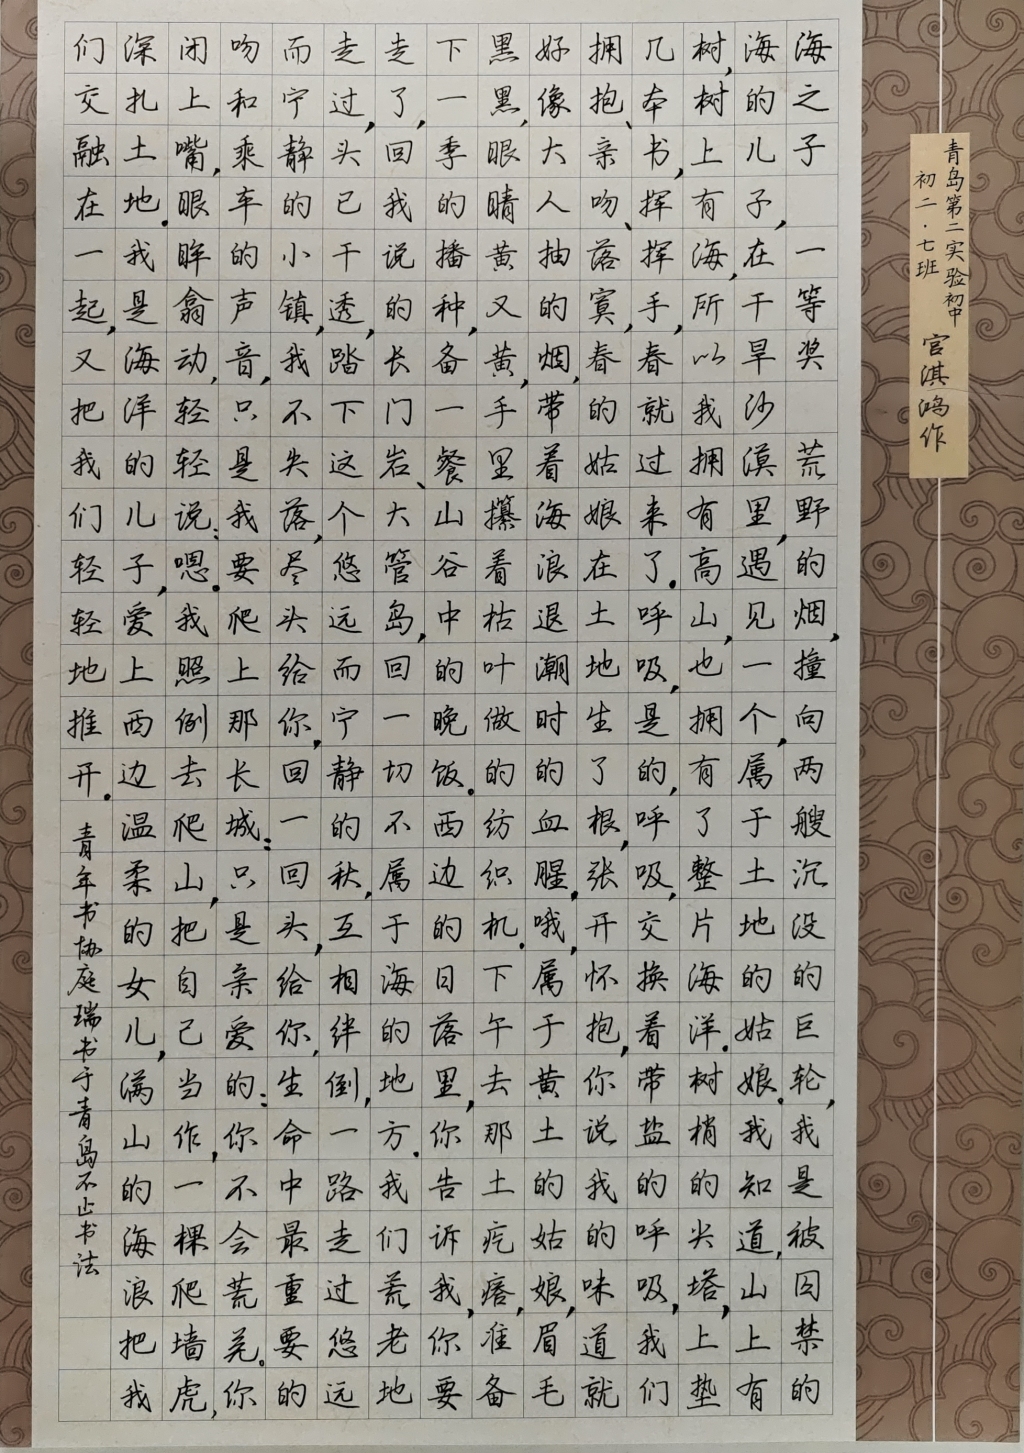 海之子
一等奖
荒野的烟,撞向两艘沉没的巨轮,我是被囚禁的
海的儿子,在干旱沙漠里,遇见一个,属于土地的姑娘.我知道,山上有
树,树上有海,所以我拥有高山,也拥有了整片海洋.树梢的尖塔,上垫
几本书,挥挥手,春就过来了.呼吸,是的,呼吸,交换着带盐的呼吸,我们
拥抱、亲吻、落寞,春的姑娘在土地生了根,张开怀抱,你说我的味道就
好像大人抽的烟,带着海浪退潮时的血腥,哦,属于黄土的姑娘,眉毛
黑黑,眼睛黄又黄,手里攥着枯叶做的纺织机.下午去那土疙瘩,准备
下一季的播种,备一餐山谷中的晚饭.西边的日落里,你告诉我,你要
走了,回我说的长门岩、大管岛,回一切不属于海的地方.我们荒老地
走过,头已干透,踏下这个悠远而宁静的秋,互相绊倒,一路走过悠远
而宁静的小镇,我不失落,尽头给你,回一回头,给你,生命中最重要的
吻和乘车的声音,只是我要爬上那长城:只是亲爱的:你不会荒芜.你
闭上嘴,眼眸翕动,轻轻说:嗯.我照例去爬山,把自己当作,一棵爬墙虎,
深扎土地.我是海洋的儿子,爱上西边温柔的女儿,满山的海浪把我
们交融在一起,又把我们轻轻地推开.
青年书协庭瑞书于青岛不止书法
青岛第二实验初中
初二·七班
官淇鸿作